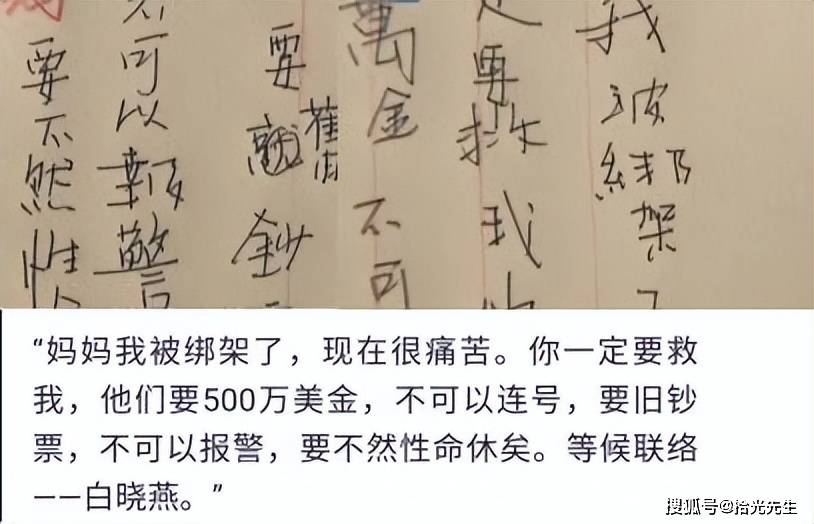 我被綁架了
定要救我
萬金不可
要舊鈔
不可以報警
要不然性
“妈妈我被绑架了，现在很痛苦。你一定要救
我，他们要500万美金，不可以连号，要旧钞
票，不可以报警，要不然性命休矣。等候联络
——白晓燕。”
搜狐号@拾光先生